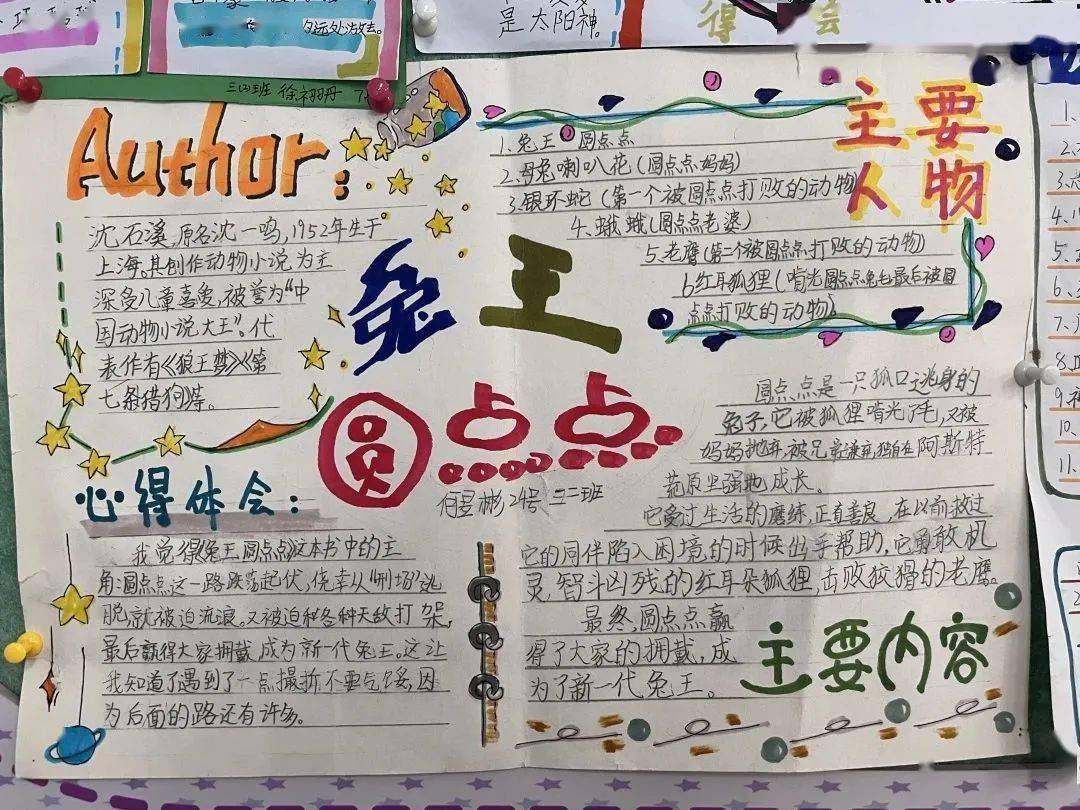 是太阳神。
得 会
三(4)班
Author:
沈石溪,原名沈一鸣,1952年生于
上海。其创作动物小说为主
深受儿童喜爱,被誉为“中
国动物小说大王”。代
表作有《狼王梦》《第
七条猎狗》等。
心得体会:
我觉得《兔王圆点点》这本书中的主
角:圆点点这一路跌宕起伏,侥幸从“刑场”逃
脱,就被迫流浪。又被迫和各种天敌打架,
最后赢得大家拥戴,成为新一代兔王。这让
我知道了遇到了一点挫折不要气馁,因
为后面的路还有许多。
兔王
圆点点
24号 三二班
主要
人物
1.兔王 圆点点
2.母兔喇叭花(圆点点妈妈)
3.银环蛇(第一个被圆点点打败的动物
4.蛾蛾(圆点点老婆)
5.老鹰(第二个被圆点点打败的动物)
6.红耳狐狸(啃光圆点点兔毛最后被圆
点点打败的动物)
圆点点是一只狐口逃身的
兔子,它被狐狸啃光了毛,又被
妈妈抛弃,被兄弟 独自在阿斯特
荒原坚强地成长。
它受过生活的磨练,正直善良,在以前救过
它的同伴陷入困境的时候出手帮助,它勇敢机
灵,智斗凶残的红耳朵狐狸,击败狡猾的老鹰。
最终,圆点点赢
得了大家的拥戴,成
为了新一代兔王。
主要内容
1.
2.
3.
4.
5.
6.
7.
8.
9.
10.
11.